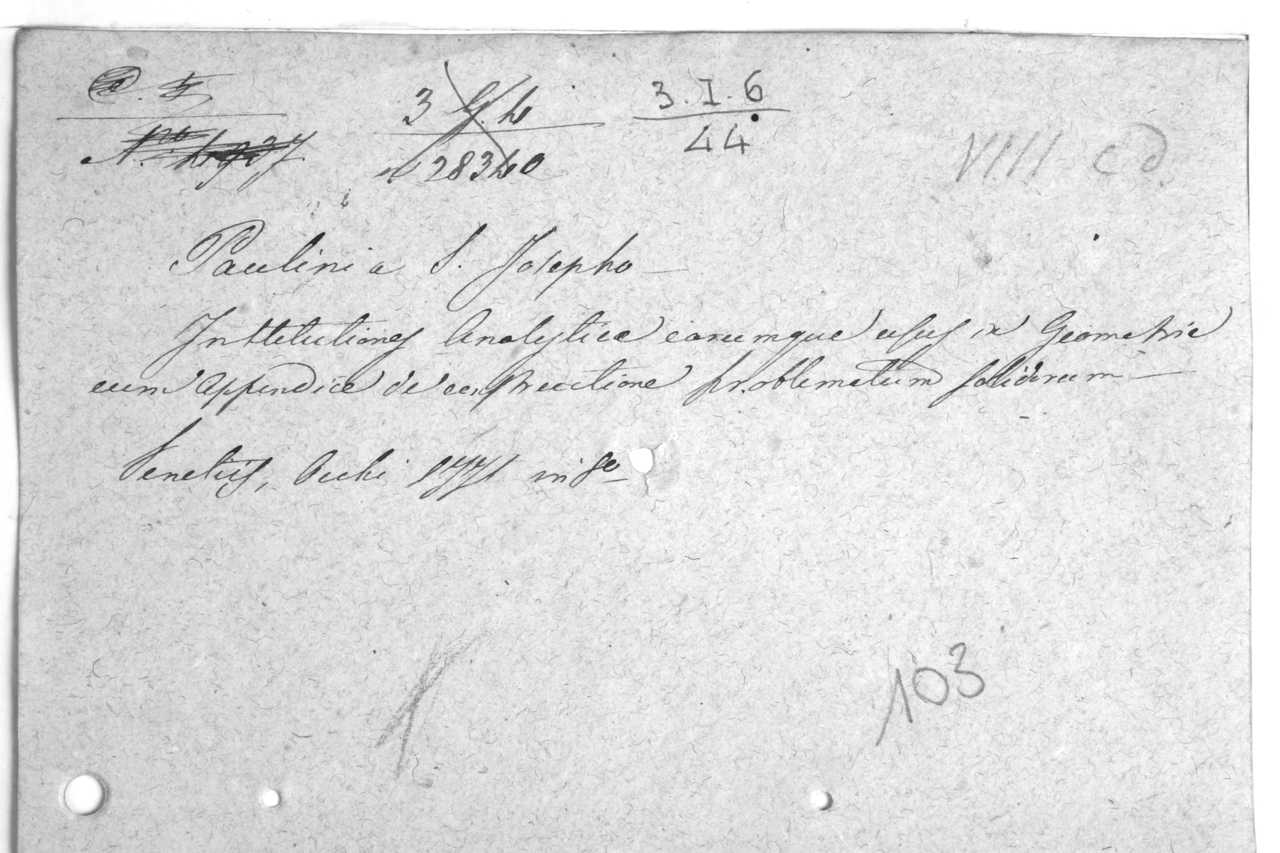 3. I. 6
44
28340
VIII C d.
Paulini a S. Josepho
Institutiones Analytice earumque usus in Geometrie
cum appendice de constructione problematum solidorum
Venetiis, Occhi 1771 in 8º
103